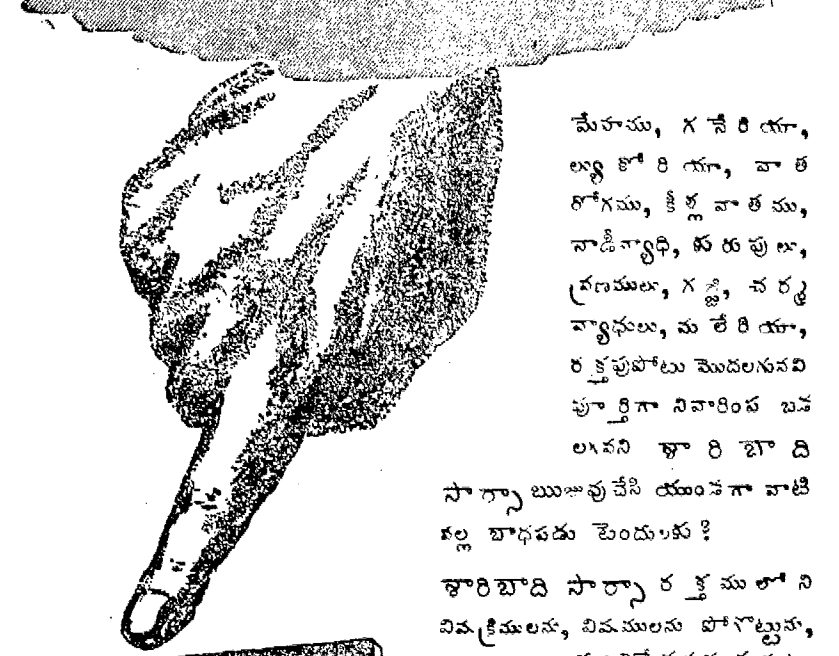 మేహము, గనేరియా,
ల్యుకోరియా, వాత
రోగము, కీళ్లవాతము,
నాడీవ్యాధి, కురుపులు,
వ్రణములు, గజ్జి, చర్మ
వ్యాధులు, మలేరియా,
రక్తపుపోటు మొదలగునవి
పూర్తిగా నివారింప బడ
లగవని శారిబాది
సార్సా ఋజువుచేసి యుండగా వాటి
వల్ల బాధపడు టెందులకు?
శారిబాది సార్సా రక్తములోని
విషక్రిములను, విషములను పోగొట్టును,